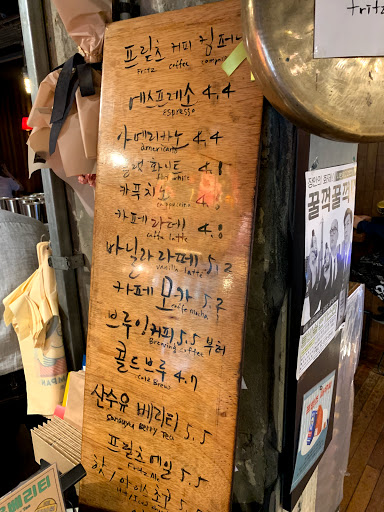 프릳츠 커피 컴퍼니
Fritz coffee comp
에스프레소 4,4
ESPRESSO
아메리카노 4,4
americano
플랫 화이트 4,8
flat white
카푸치노 4,8
cappuccino
카페 라떼 4,8
caffe latte
바닐라 라떼 5,2
vanilla latte
카페 모카 5,2
caffe mocha
브루잉커피 5,5 부터
Brewing coffee
콜드브루 4,7
Cold Brew
산수유 베리티 5,5
Sansuyu Berry Tea
프릳츠에일 5,5
Fritz Ale
fritz
꿀꺽꿀꺽
베리티